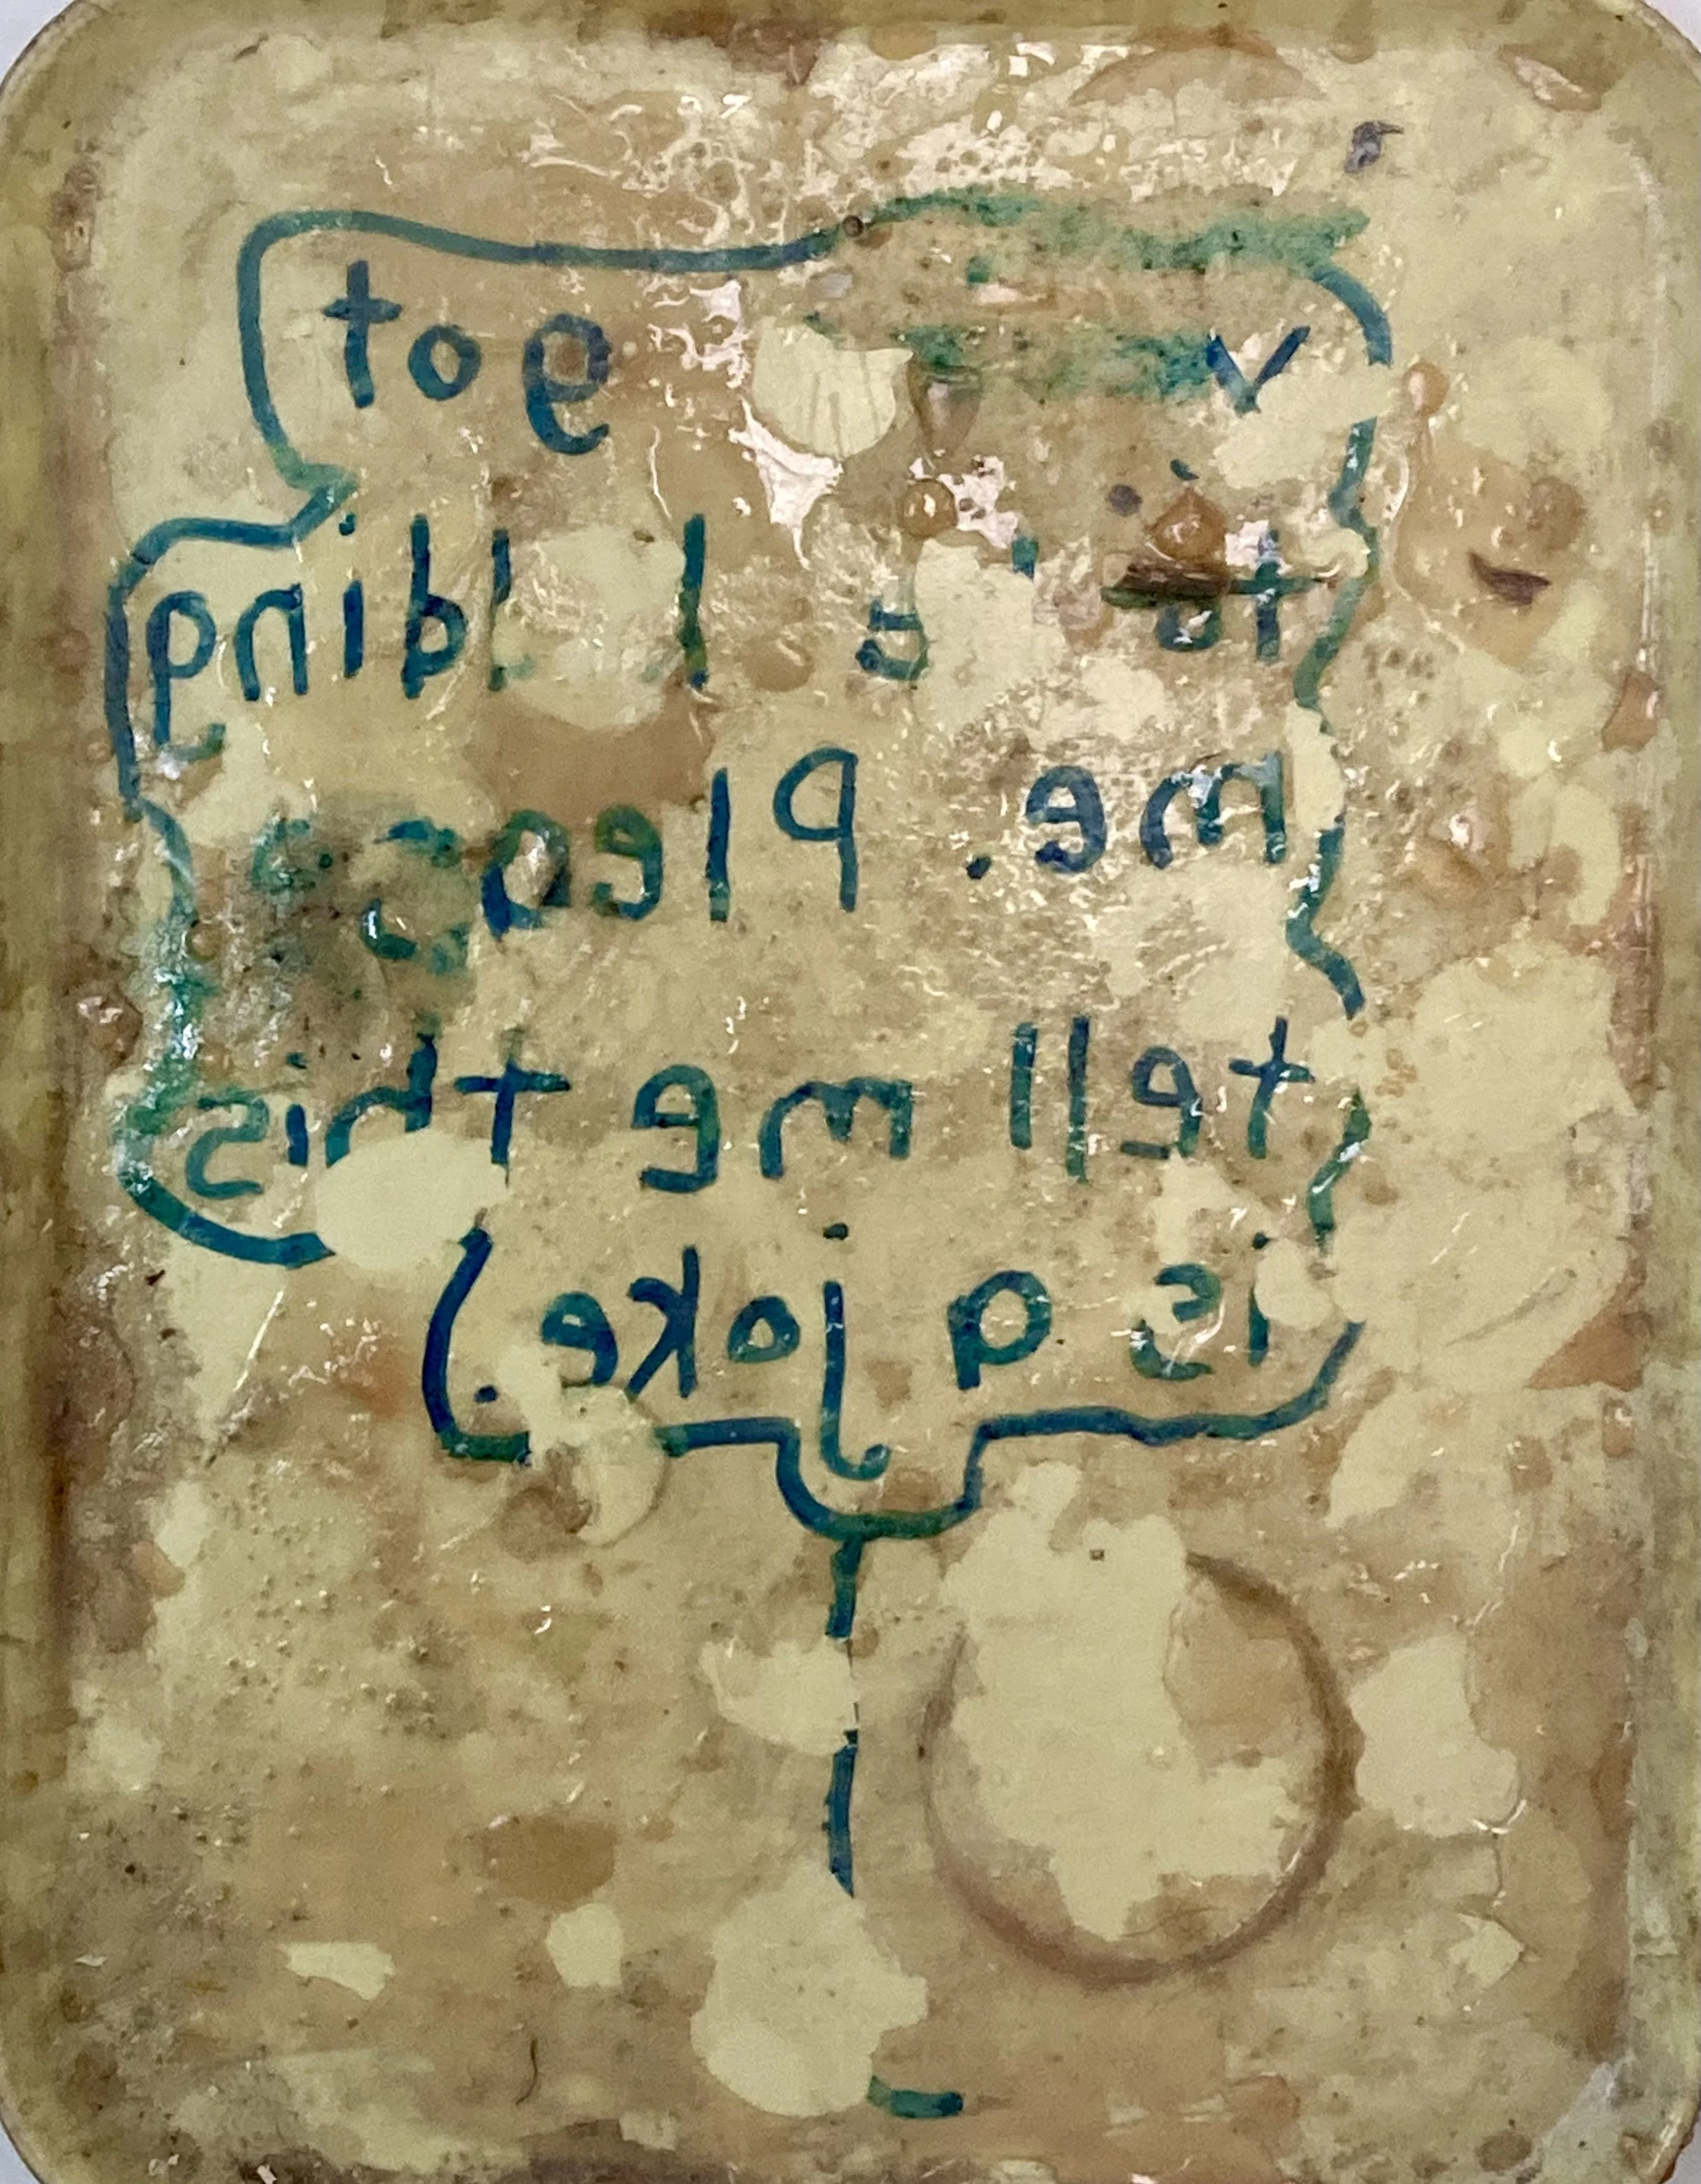 got
to kidding
me. Please
tell me this
is a joke.